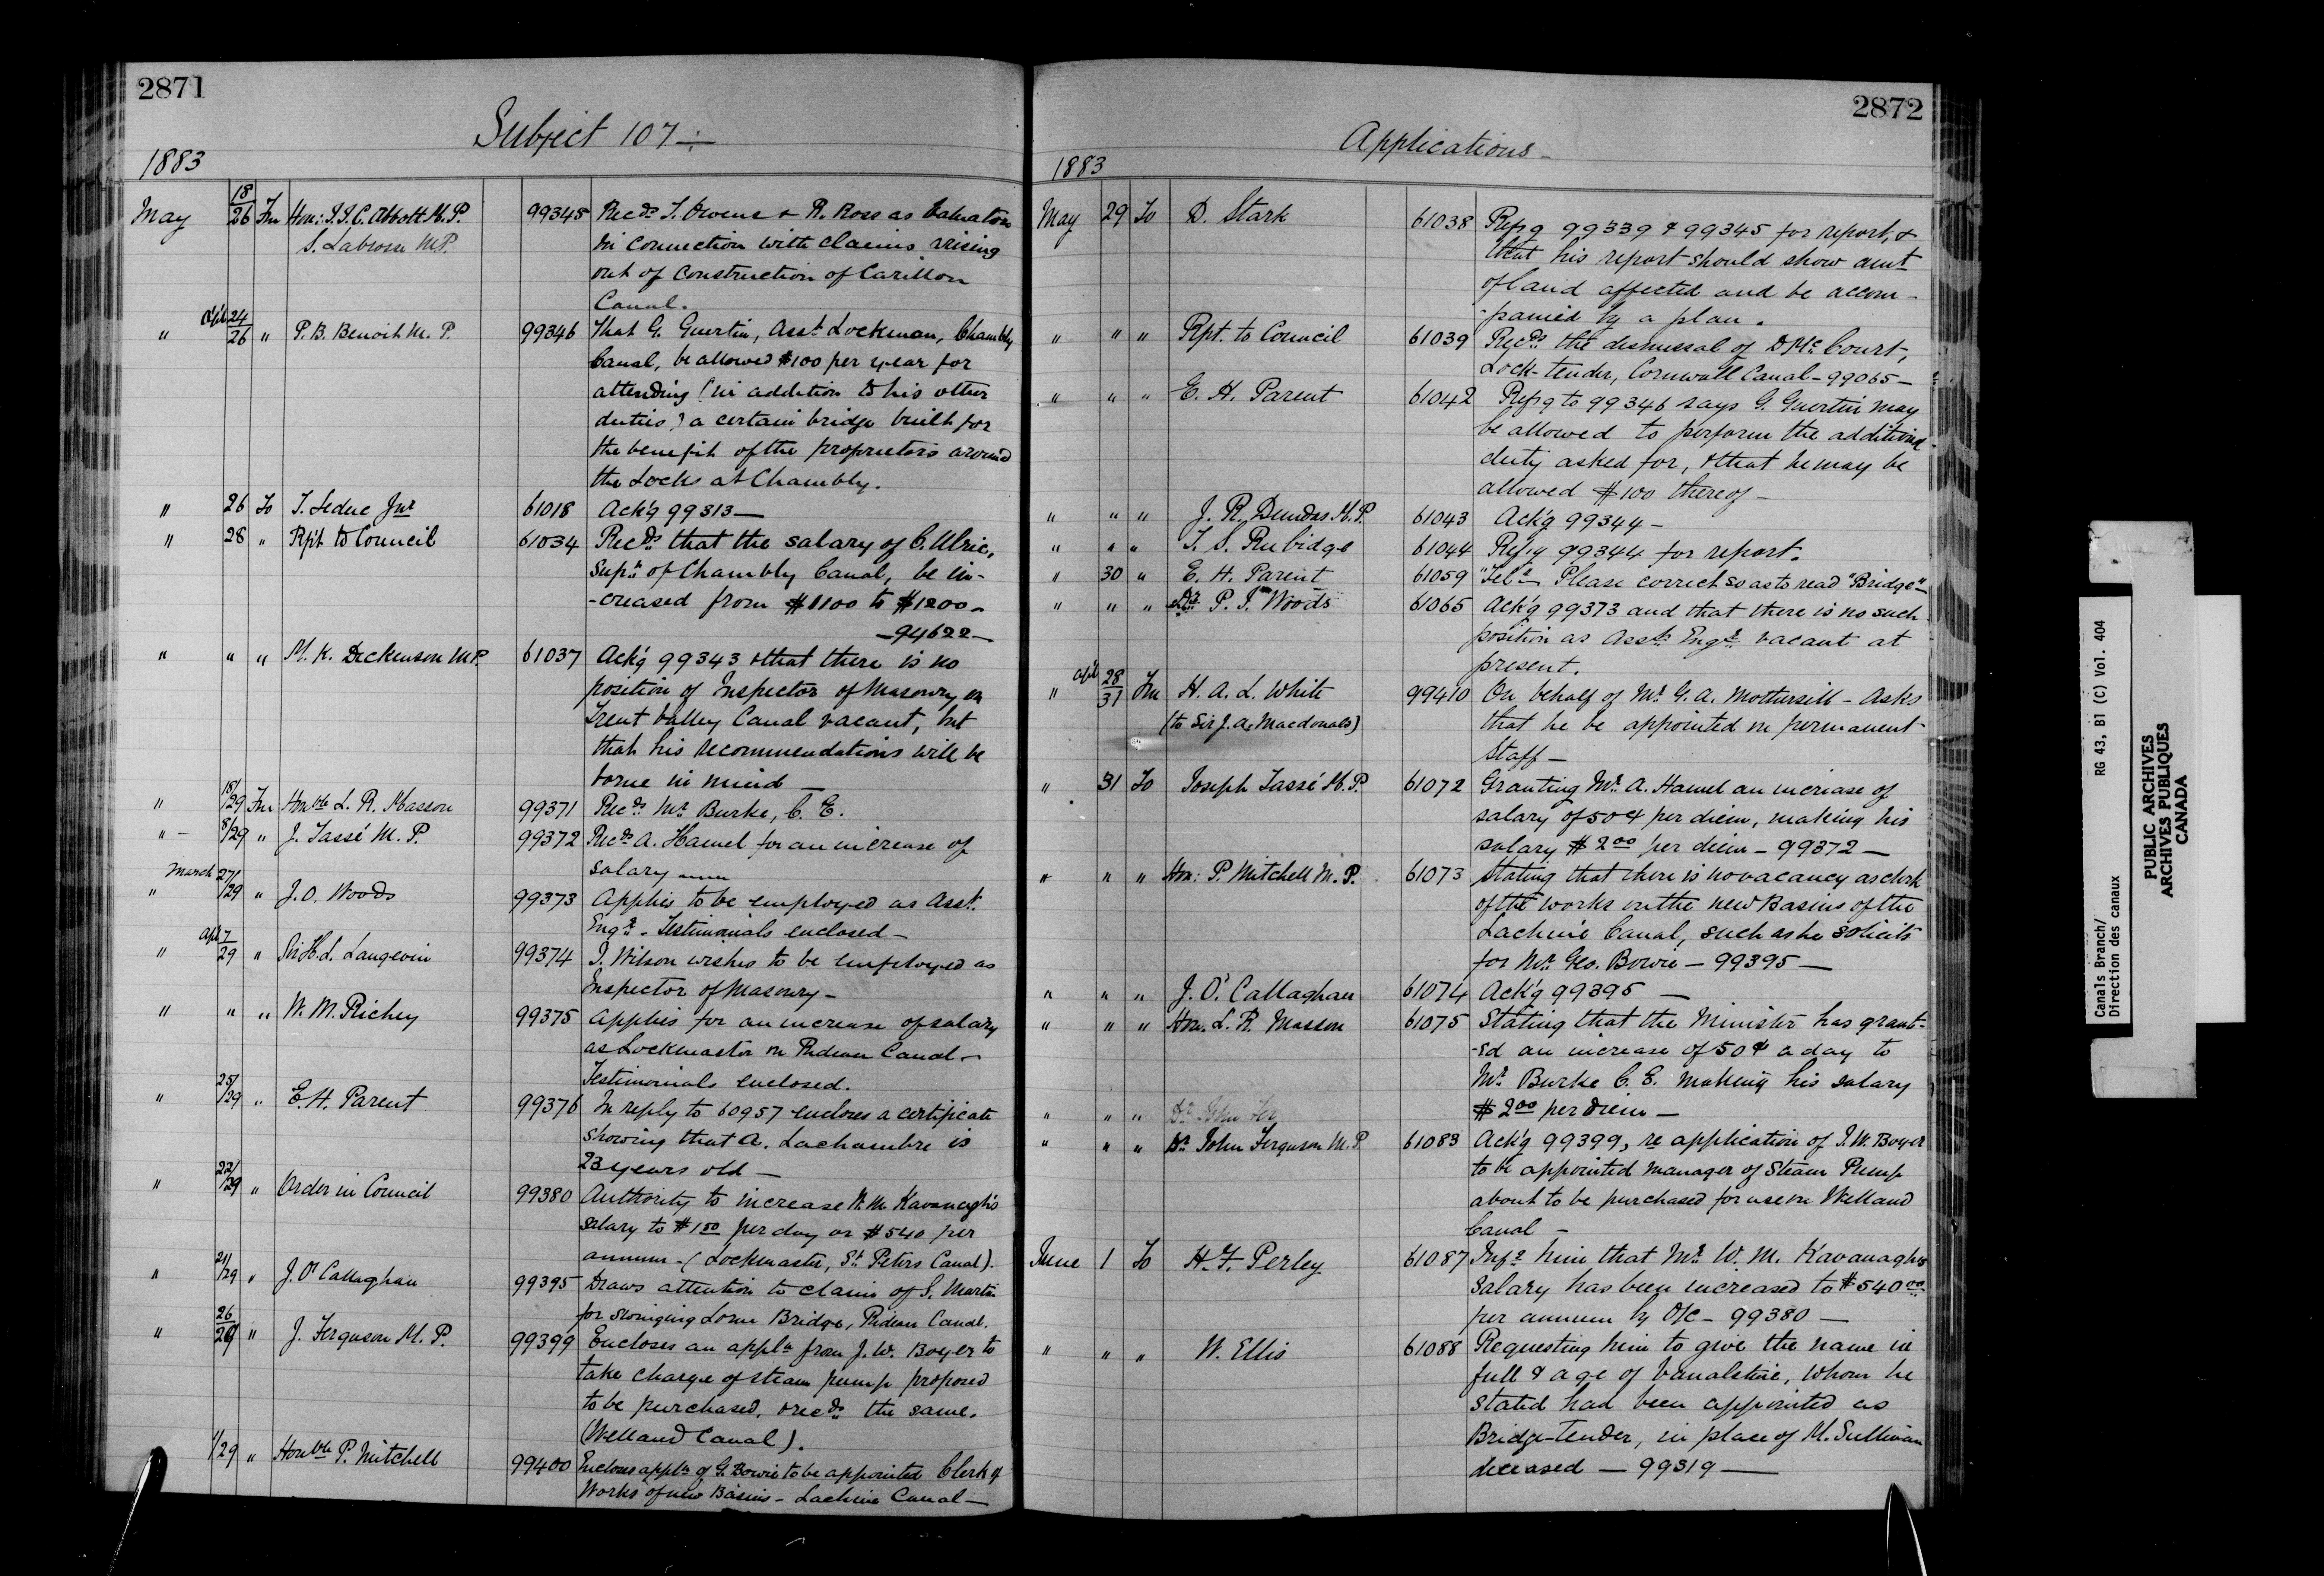 2871
Subject 107
1883
May 18/26 Fm Hon: J.J.C. Abbott M.P. 99345 Recds T. Owens & R. Ross as Valuators
S. Labrosse M.P. in connection with claims arising
out of construction of Carillon
Canal.
" Apl 24/26 " P. B. Benoit M. P. 99346 That G. Guertin, Asst Lockman, Chambly
Canal, be allowed $100 per year for
attending (in addition to his other
duties) a certain bridge built for
the benefit of the proprietors around
the Locks at Chambly.
" 26 To T. Leduc Jnr 61018 Ack'g 99313 —
" 28 " Rp't to Council 61034 Recds that the salary of C. Ulric,
Supt of Chambly Canal, be in-
-creased from $1100 to $1200 —
— 94622 —
" " " M. K. Dickenson M.P. 61037 Ack'g 99343 & that there is no
position of Inspector of Masonry on
Trent Valley Canal vacant, but
that his recommendations will be
borne in mind —
" 18/29 Fm Honble L. R. Masson 99371 Recds Mr Burke, C. E.
" — 8/29 " J. Tassé M. P. 99372 Recds A. Hamel for an increase of
salary
" March 27/29 " J. O. Woods 99373 Applies to be employed as Asst
Engr. Testimonials enclosed —
" Apl 7/29 " Sir H. L. Langevin 99374 J. Wilson wishes to be employed as
Inspector of Masonry —
" " " W. M. Richey 99375 Applies for an increase of salary
as Lockmaster on Rideau Canal —
Testimonials enclosed.
" 25/29 " E. H. Parent 99376 In reply to 60957 encloses a certificate
showing that A. Lachambre is
23 years old —
" 22/29 " Order in Council 99380 Authority to increase W. M. Kavanagh's
salary to $1 50 per day or $540 per
annum — (Lockmaster, St Peters Canal).
" 21/29 " J. O'Callaghan 99395 Draws attention to claim of S. Martin
for swinging Lorne Bridge, Rideau Canal.
" 26/29 " J. Ferguson M. P. 99399 Encloses an appln from J. W. Boyer to
take charge of steam pump proposed
to be purchased, & recds the same.
(Welland Canal).
1/29 " Honble P. Mitchell 99400 Encloses appln of G. Bowie to be appointed Clerk of
Works of new Basins — Lachine Canal —
2872
Applications —
1883
May 29 To D. Stark 61038 Refg 99339 & 99345 for report, &
that his report should show amt
of land affected and be accom-
-panied by a plan.
" " " Rpt. to Council 61039 Recds the dismissal of D McCourt,
Lock-tender, Cornwall Canal — 99065 —
" " " E. H. Parent 61042 Refg to 99346 says G. Guertin may
be allowed to perform the additional
duty asked for, & that he may be
allowed $100 thereof —
" " " J. R. Dundas M.P. 61043 Ack'g 99344 —
" " " T. S. Rubidge 61044 Refg 99344 for report.
" 30 " E. H. Parent 61059 "Tel" Please correct so as to read "Bridge" —
" " " P. J. Woods 61065 Ack'g 99373 and that there is no such
position as Asst Engr vacant at
present.
" Apl 28/31 Fm H. A. L. White 99410 On behalf of Mr G. A. Mothersill — Asks
(to Sir J. A. Macdonald) that he be appointed on permanent
staff —
" 31 To Joseph Tassé M. P. 61072 Granting Mr A. Hamel an increase of
salary of 50¢ per diem, making his
salary $2 00 per diem — 99372 —
" " " Hon: P. Mitchell M. P. 61073 Stating that there is no vacancy as clerk
of the works on the new Basins of the
Lachine Canal, such as he solicits
for Mr Geo. Bowie — 99395 —
" " " J. O'Callaghan 61074 Ack'g 99395 —
" " " Hon. L. R. Masson 61075 Stating that the Minister has grant-
-ed an increase of 50¢ a day to
Mr Burke C. E. making his salary
" " " Dr John Fer $2 00 per diem —
" " " Dr John Ferguson M.P. 61083 Ack'g 99399, re application of J. W. Boyer
to be appointed manager of Steam Pump
about to be purchased for use on Welland
Canal —
June 1 To H. F. Perley 61087 Infg him that Mr W. M. Kavanagh's
salary has been increased to $540 00
per annum by O/C — 99380 —
" " " W. Ellis 61088 Requesting him to give the name in
full & age of Vanalstine, whom he
stated had been appointed as
Bridge-tender, in place of M. Sullivan
deceased — 99319 —
Canals Branch/ RG 43, B1 (C) Vol. 404
Direction des canaux
PUBLIC ARCHIVES
ARCHIVES PUBLIQUES
CANADA